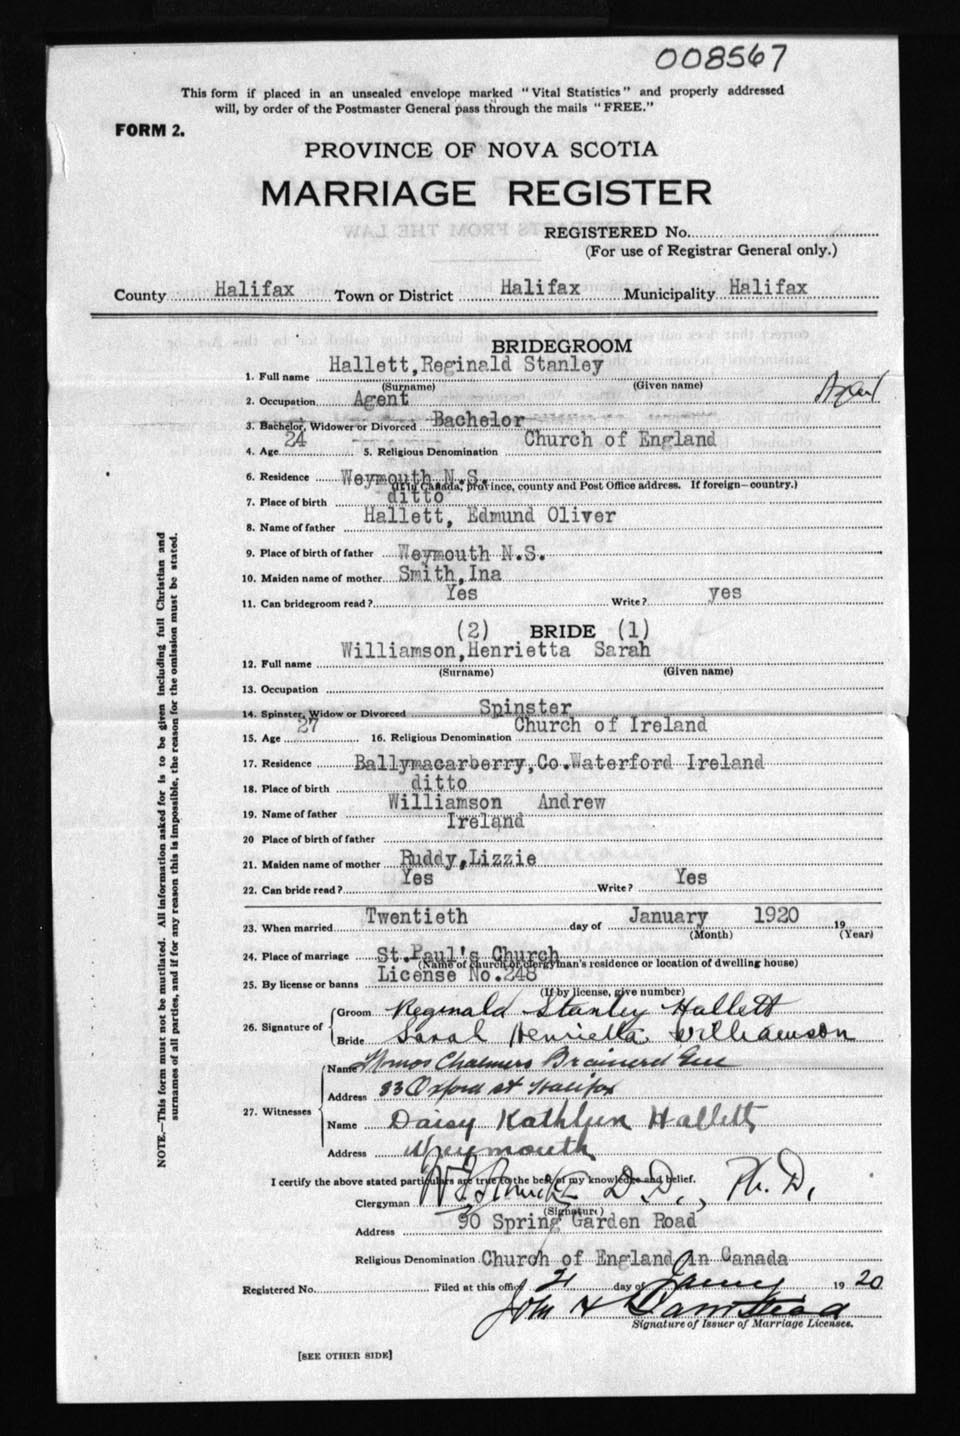 008567
This form if placed in an unsealed envelope marked "Vital Statistics" and properly addressed
will, by order of the Postmaster General pass through the mails "FREE."
FORM 2.
PROVINCE OF NOVA SCOTIA
MARRIAGE REGISTER
REGISTERED No.
(For use of Registrar General only.)
County Halifax Town or District Halifax Municipality Halifax
BRIDEGROOM
1. Full name Hallett,Reginald Stanley
(Surname) (Given name)
2. Occupation Agent Agent
3. Bachelor, Widower or Divorced Bachelor
4. Age 24 5. Religious Denomination Church of England
6. Residence Weymouth N.S.
(If in Canada, province, county and Post Office address. If foreign—country.)
7. Place of birth ditto
8. Name of father Hallett, Edmund Oliver
9. Place of birth of father Weymouth N.S.
10. Maiden name of mother Smith,Ina
11. Can bridegroom read? Yes Write? yes
(2) BRIDE (1)
12. Full name Williamson,Henrietta Sarah
(Surname) (Given name)
13. Occupation
14. Spinster, Widow or Divorced Spinster
15. Age 27 16. Religious Denomination Church of Ireland
17. Residence Ballymacarberry,Co.Waterford Ireland
18. Place of birth ditto
19. Name of father Williamson Andrew
20 Place of birth of father Ireland
21. Maiden name of mother Ruddy,Lizzie
22. Can bride read? Yes Write? Yes
23. When married Twentieth day of January 1920 19
(Month) (Year)
24. Place of marriage St.Paul's Church
(Name of church or clergyman's residence or location of dwelling house)
25. By license or banns License No.248
(If by license, give number)
26. Signature of Groom Reginald Stanley Hallett
Bride Sarah Henrietta Williamson
27. Witnesses
Name Chalmers Brainerd
Address 83 Oxford st Halifax
Name Daisy Kathleen Hallett
Address Weymouth
I certify the above stated particulars are true to the best of my knowledge and belief.
Clergyman D.D., Ph.D.
(Signature)
Address 90 Spring Garden Road
Religious Denomination Church of England in Canada
Registered No. Filed at this office 21 day of January 1920
John H
Signature of Issuer of Marriage Licenses.
[SEE OTHER SIDE]
NOTE.—This form must not be mutilated. All information asked for is to be given including full Christian and
surnames of all parties, and if for any reason this is impossible, the reason for the omission must be stated.